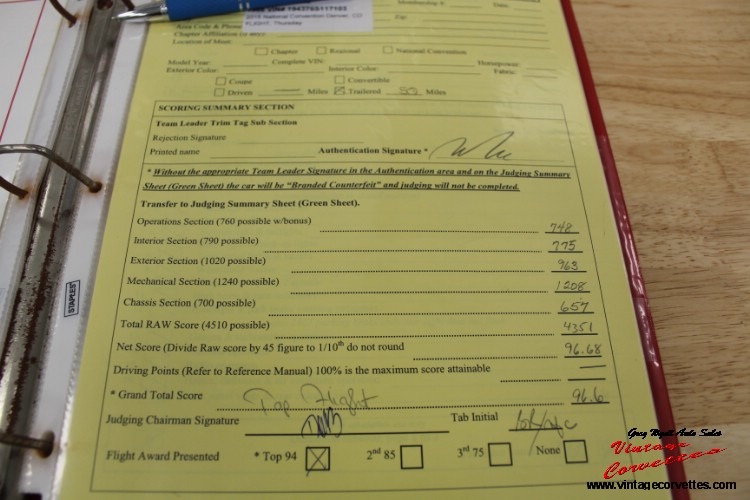 2015 National Convention Denver, CO
FLIGHT, Thursday
Membership #
Date
Area Code & Phone
Zip:
Chapter Affiliation
Location of Meet:
Chapter Regional National Convention
Model Year: Complete VIN: Horsepower:
Exterior Color: Interior Color: Fabric:
Coupe Convertible
Driven Miles Trailered 50 Miles
SCORING SUMMARY SECTION
Team Leader Trim Tag Sub Section
Rejection Signature
Printed name Authentication Signature *
* Without the appropriate Team Leader Signature in the Authentication area and on the Judging Summary
Sheet (Green Sheet) the car will be "Branded Counterfeit" and judging will not be completed.
Transfer to Judging Summary Sheet (Green Sheet).
Operations Section (760 possible w/bonus) 748
Interior Section (790 possible) 775
Exterior Section (1020 possible) 963
Mechanical Section (1240 possible) 1208
Chassis Section (700 possible) 657
Total RAW Score (4510 possible) 4351
Net Score (Divide Raw score by 45 figure to 1/10th do not round 96.68
Driving Points (Refer to Reference Manual) 100% is the maximum score attainable
* Grand Total Score Top Flight 96.6
Judging Chairman Signature Tab Initial
Flight Award Presented * Top 94 X 2nd 85 3rd 75 None
STAPLES
Greg Wyatt Auto Sales
Vintage
Corvettes
www.vintagecorvettes.com